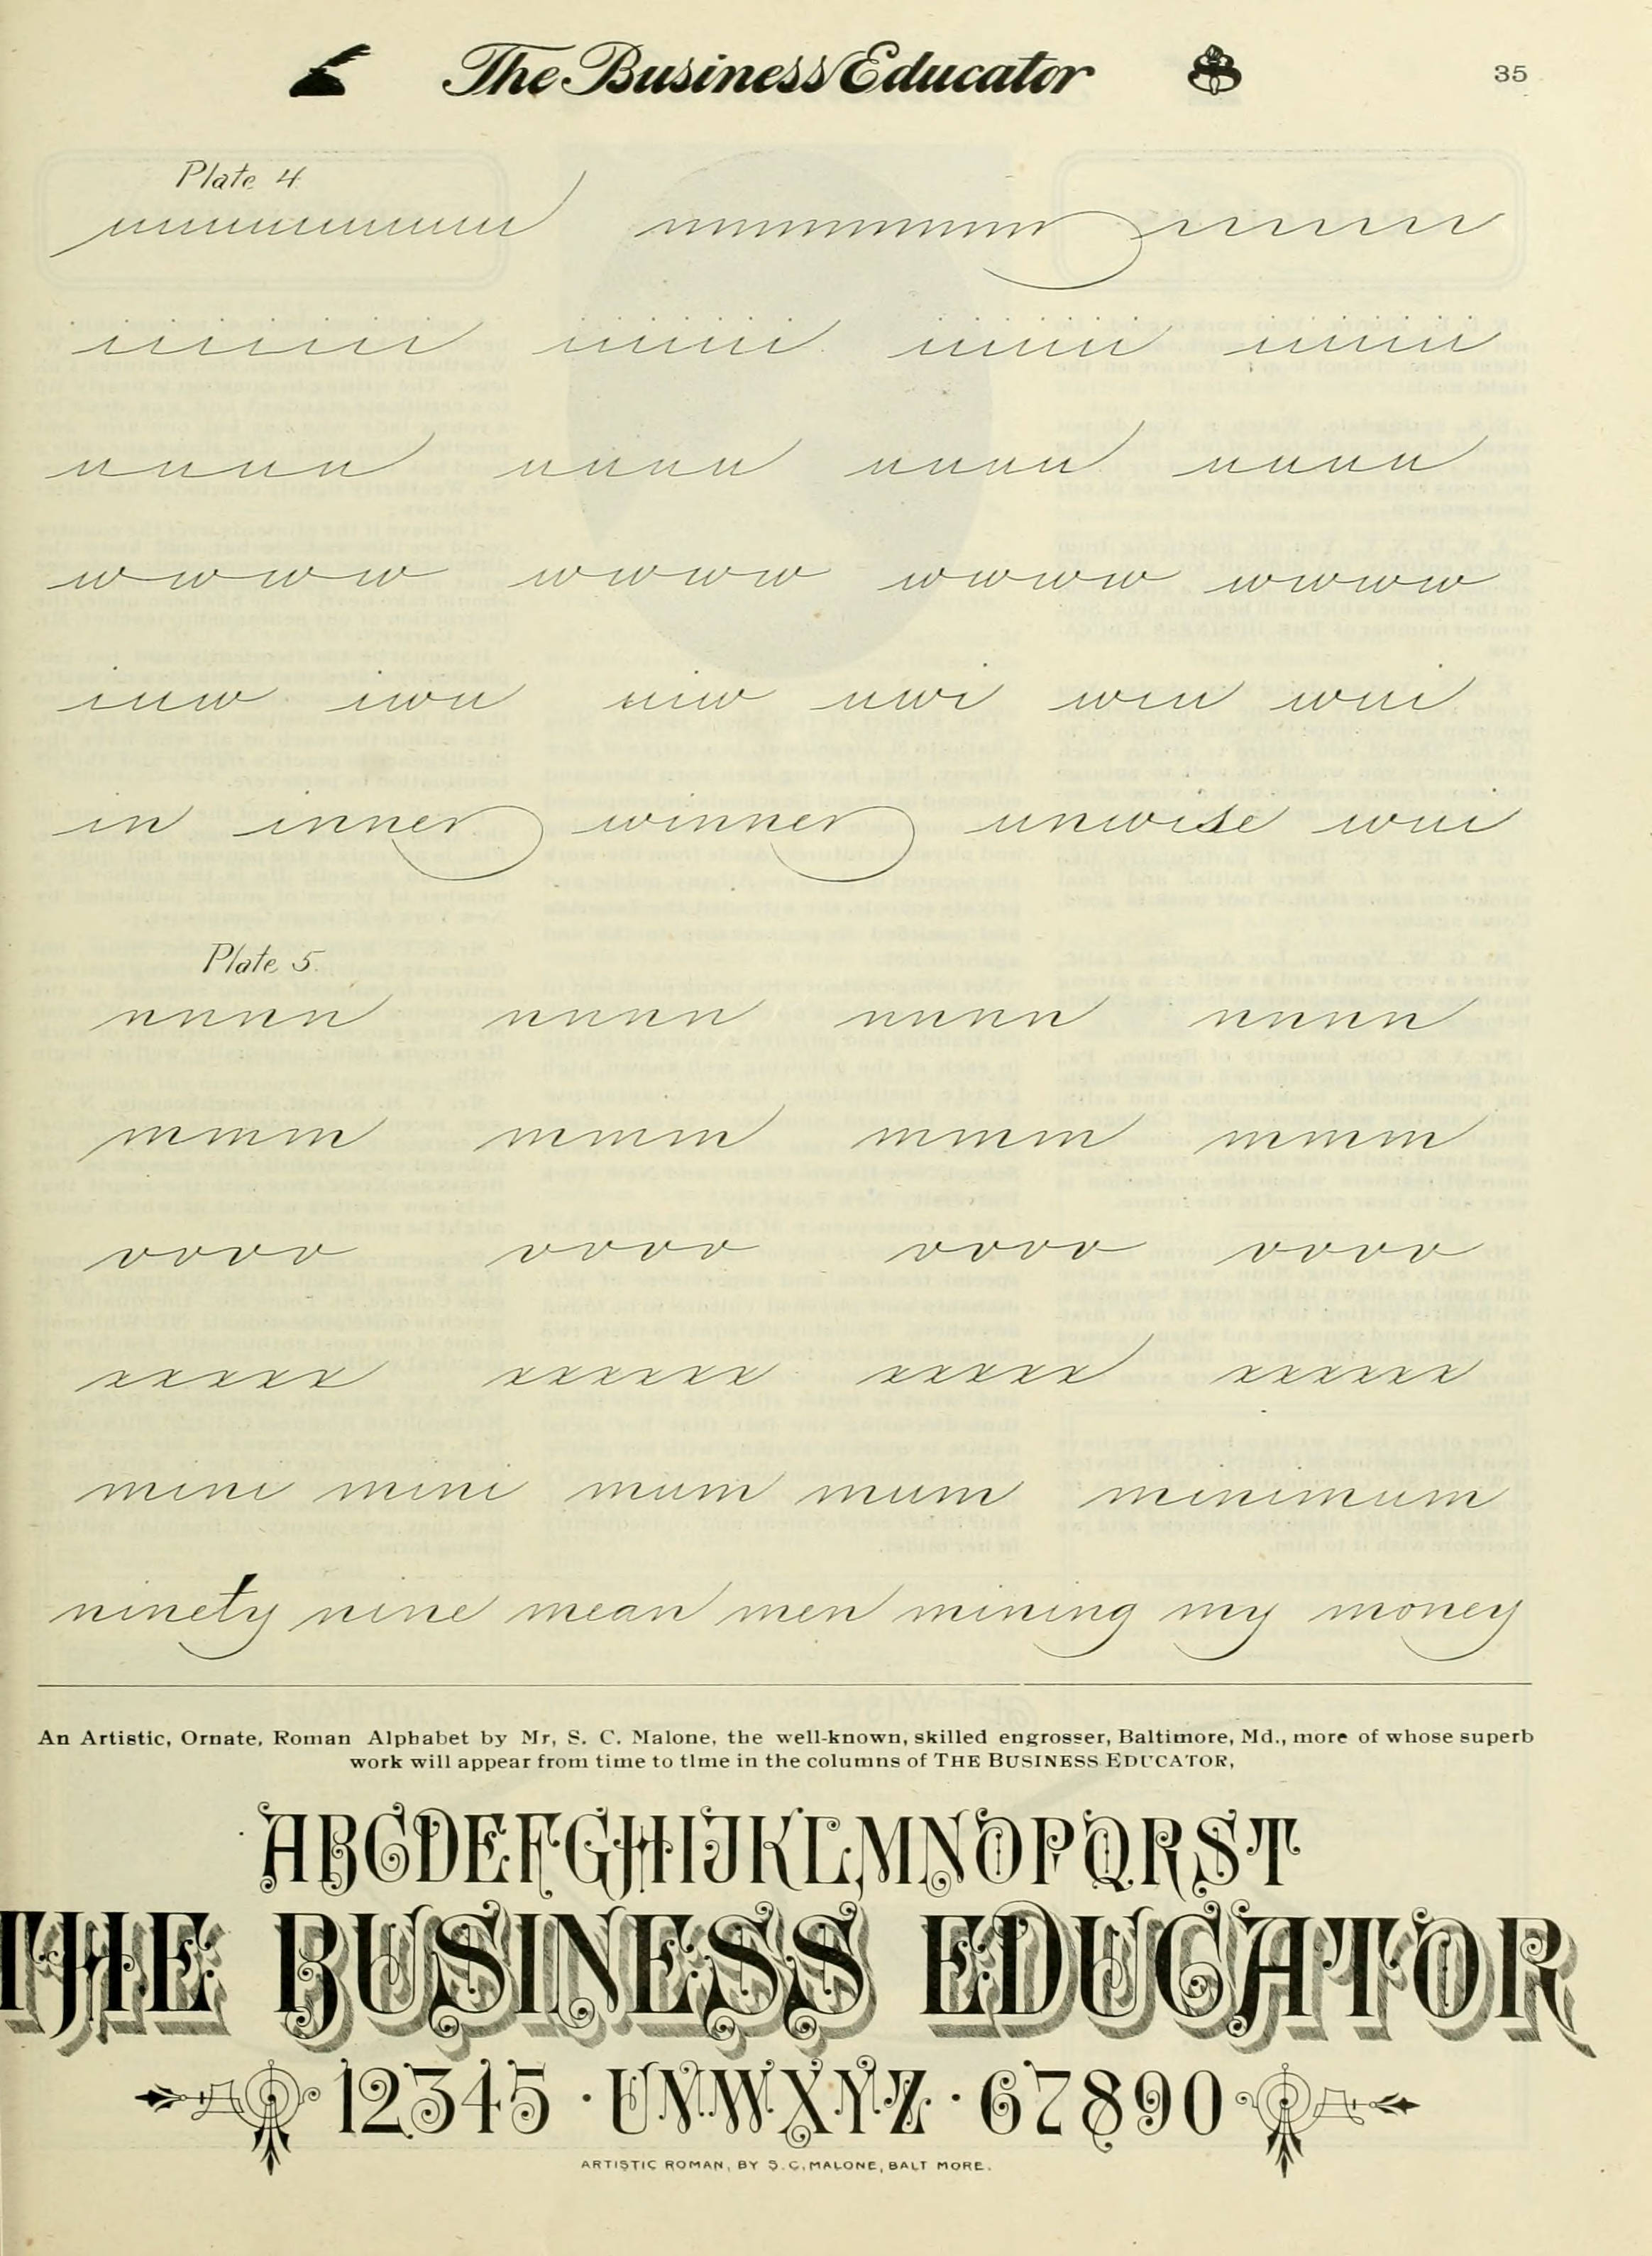 The Business Educator 35
Plate 4
iiiiii iiiiii iiiiii iiiiii
uuuu uuuu uuuu uuuu
wwww wwww wwww wwww
iuw iwu uiw uwi wiu wui
in inner winner unwise wui
Plate 5
nnnn nnnn nnnn nnnn
mmm mmm mmm mmm
vvvv vvvv vvvv vvvv
xxxxx xxxxxx xxxxx xxxxxx
mini mini mum mum minimum
ninety nine mean men mining my money
An Artistic, Ornate, Roman Alphabet by Mr, S. C. Malone, the well-known, skilled engrosser, Baltimore, Md., more of whose superb
work will appear from time to time in the columns of THE BUSINESS EDUCATOR,
ABCDEFGHIJKLMNOPQRST
THE BUSINESS EDUCATOR
12345 · UVWXYZ · 67890
ARTISTIC ROMAN, BY S. C. MALONE, BALT MORE.